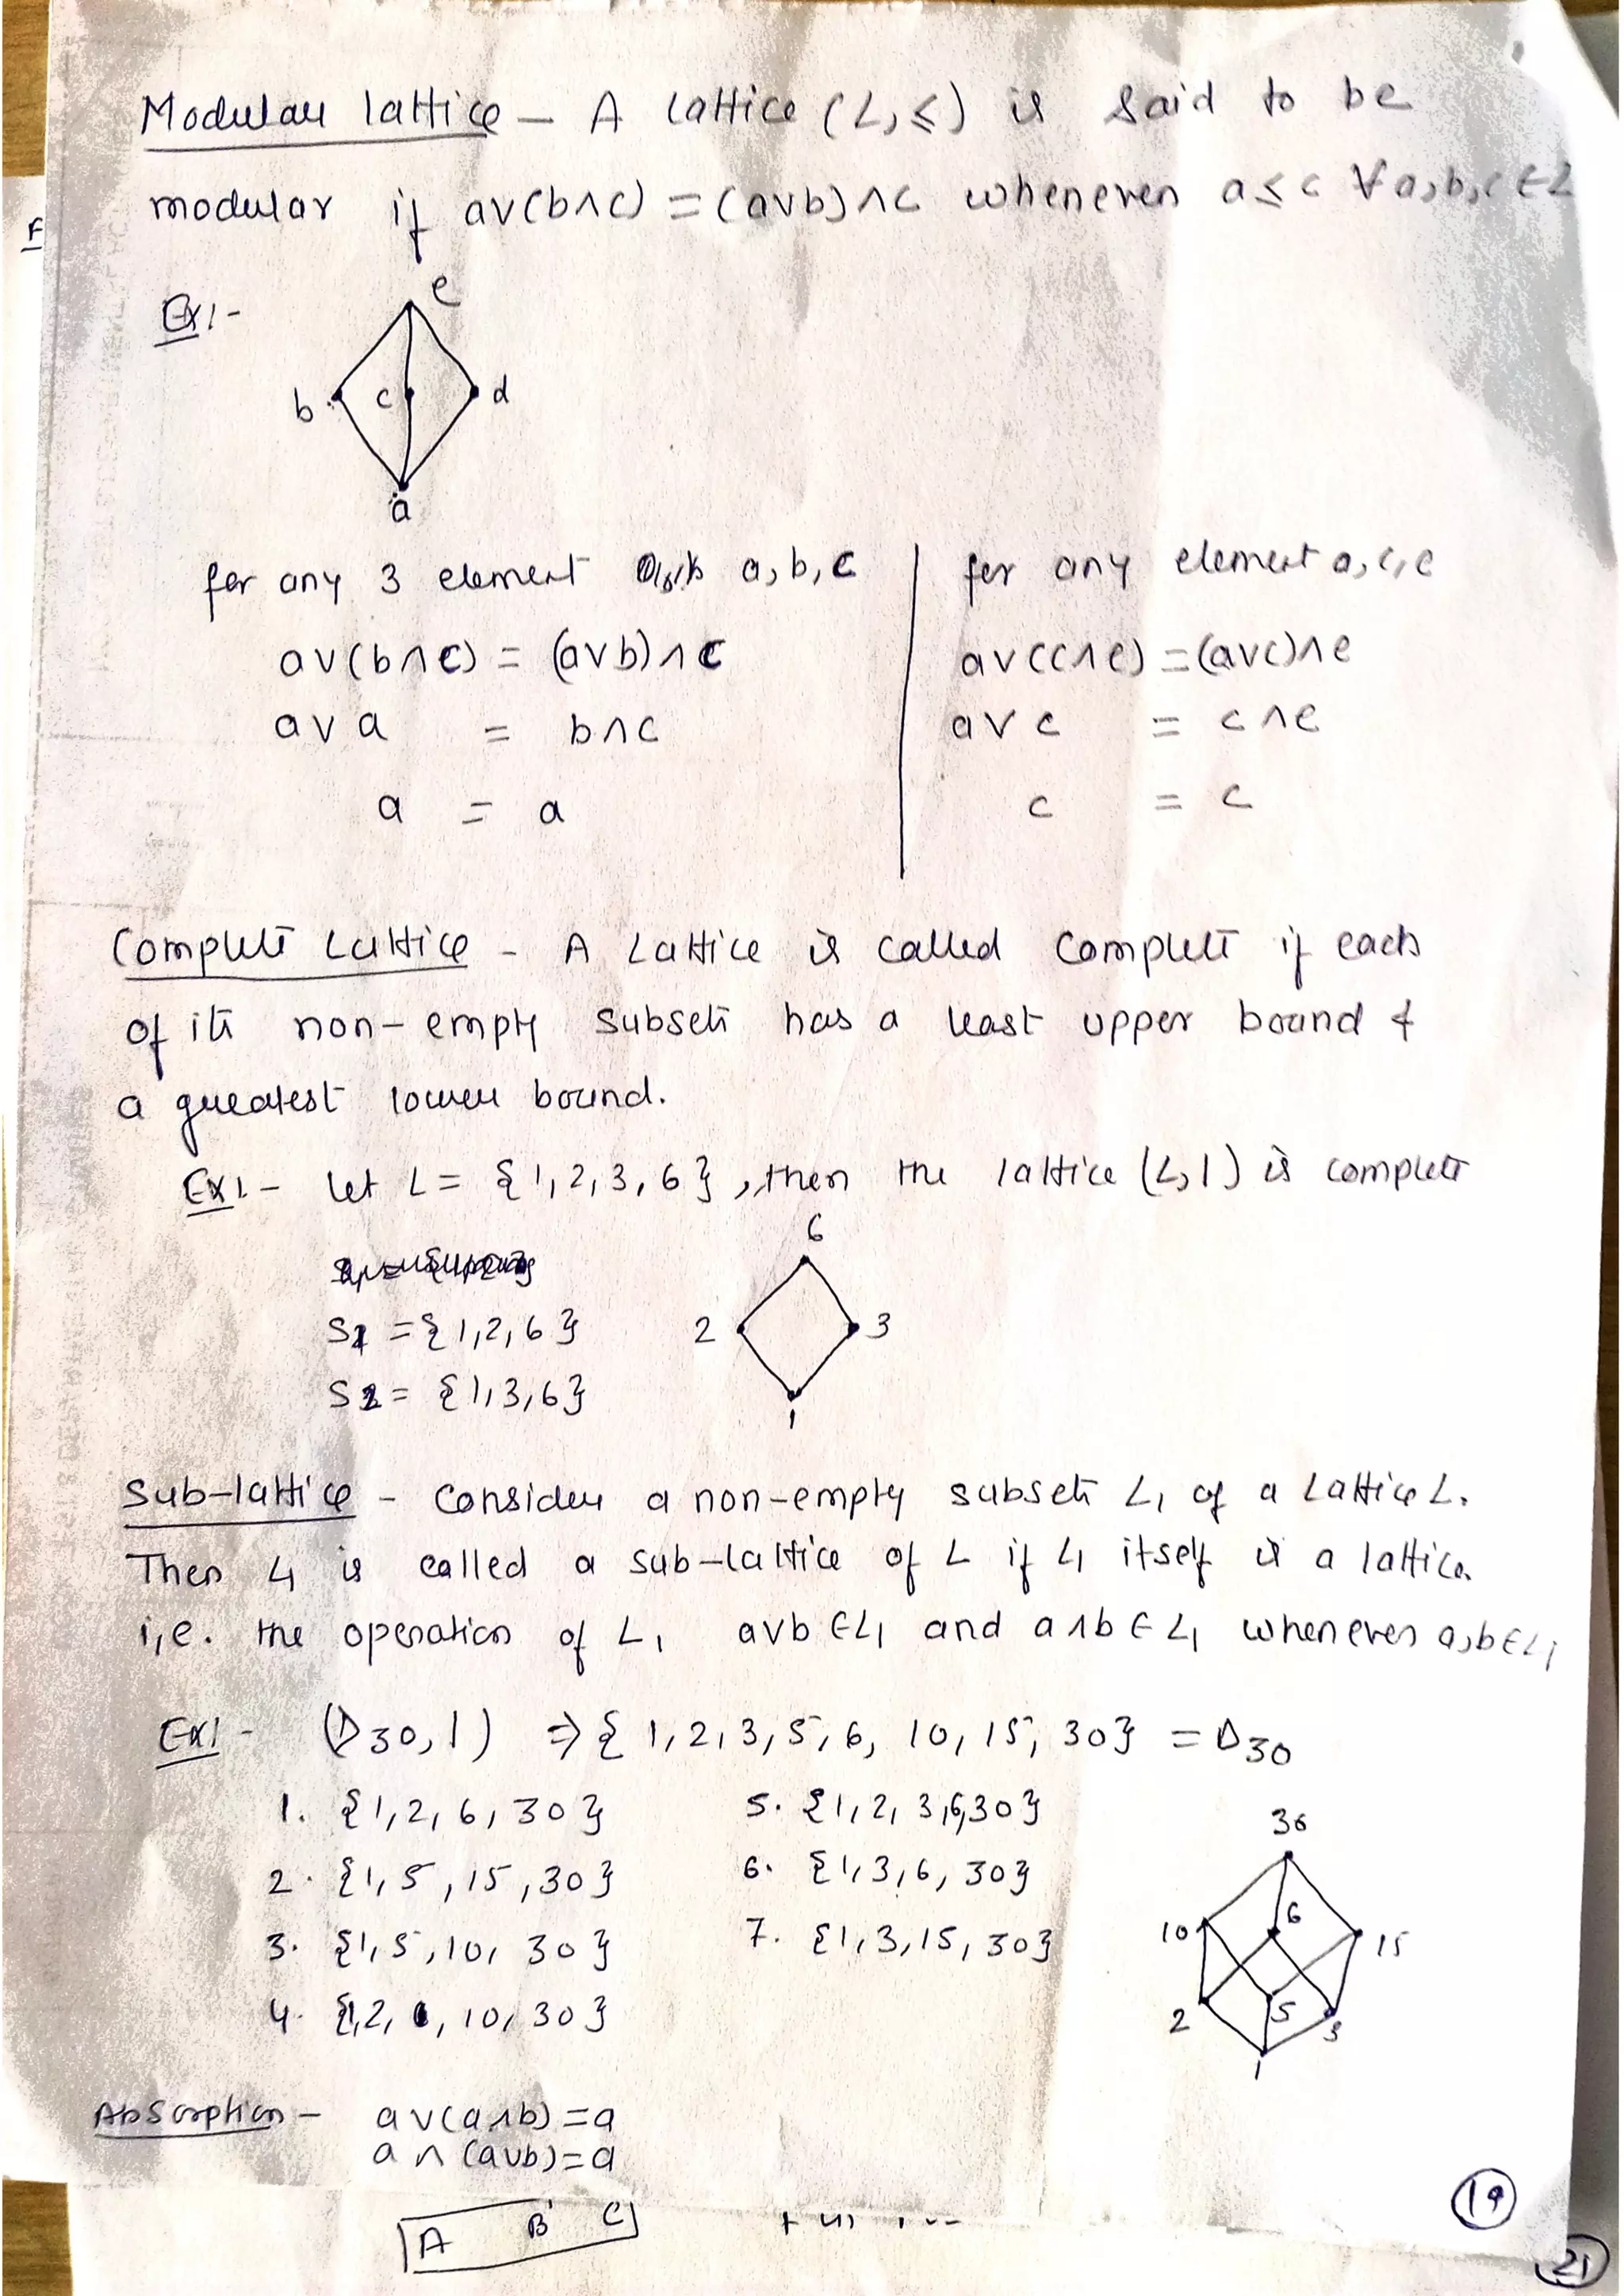 Modular lattice - A lattice (L, ≤) is said to be
modular if a∨(b∧c) = (a∨b)∧c whenever a≤c ∀ a,b,c ∈ L
F
Ex1-
e
b c d
a
for any 3 element a, b, c
a∨(b∧c) = (a∨b)∧c
a∨a = b∧c
a = a
for any element a, c, e
a∨(c∧e) = (a∨c)∧e
a∨c = c∧e
c = c
Complete Lattice - A Lattice is called complete if each
of its non-empty subsets has a least upper bound &
a greatest lower bound.
Ex1.- let L = {1, 2, 3, 6}, then the lattice (L, |) is complete
S1 = {1, 2, 6}
S2 = {1, 3, 6}
6
2 3
1
Sub-lattice - Consider a non-empty subsets L1 of a Lattice L.
Then L1 is called a sub-lattice of L if L1 itself is a lattice
i,e. the operation of L1 a∨b ∈ L1 and a∧b ∈ L1 whenever a,b ∈ L1
Ex1- (D30, |) ⇒ {1, 2, 3, 5, 6, 10, 15, 30} = D30
1. {1, 2, 6, 30}
2. {1, 5, 15, 30}
3. {1, 5, 10, 30}
4. {1, 2, 10, 30}
5. {1, 2, 3, 6, 30}
6. {1, 3, 6, 30}
7. {1, 3, 15, 30}
30
10 6 15
2 5 3
1
Absorption - a∨(a∧b) = a
a∧(a∨b) = a
A B C
19
21